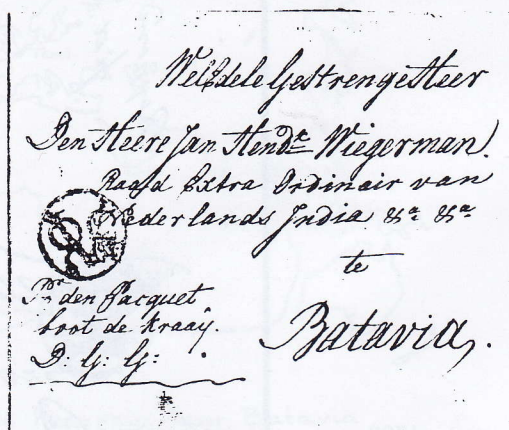 WelEdele Gestrenge Heer
Den Heere Jan Hendk Wiegerman.
Raad Extra Ordinair van
Nederlands India &a &a
te
Batavia,.
Pr den Pacquet
boot de Kraaij.
D: G: G: